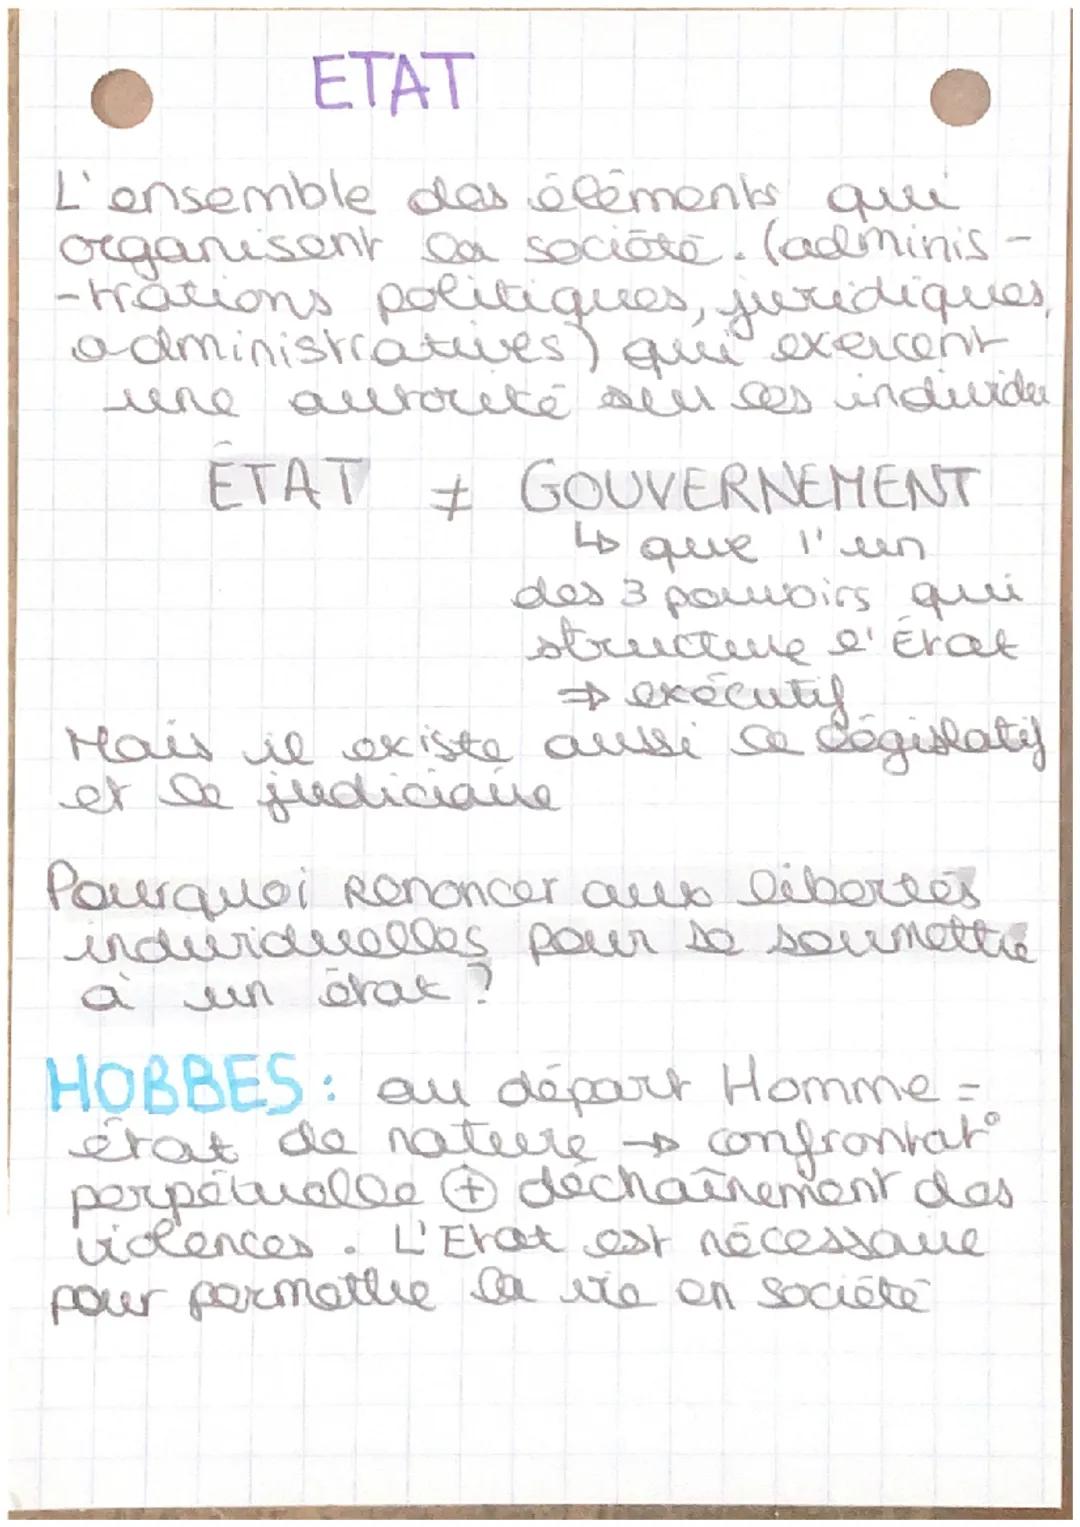 ETAT
L'ensemble des éléments qui
organisent la société. (adminis-
-trations politiques, juridiques,
administratives) qui exercent
une autorité sur les individu
ÉTAT ≠ GOUVERNEMENT
↳ que l'un
des 3 pouvoirs qui
structure l'État
⇒ exécutif
Mais il existe aussi le législatif
et le judiciaire
Pourquoi renoncer aux libertés
individuelles pour se soumettre
à un état ?
HOBBES : au départ Homme =
état de nature → confrontat°
perpétuelle ⊕ déchaînement des
violences. L'Etat est nécessaire
pour permettre la vie en société